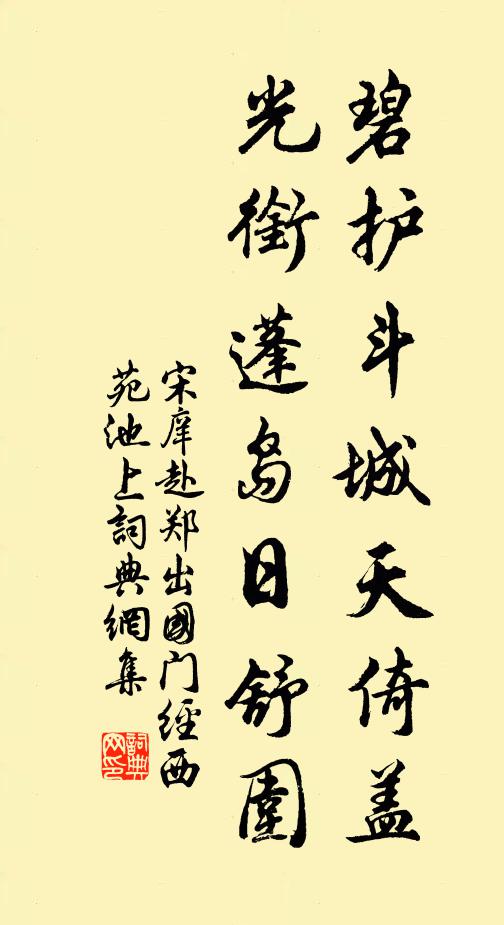 碧护斗城天倚盖
光銜蓬岛日舒圍
宋庠赴郑出國门經西
苑池上詞典網集
詞典網印